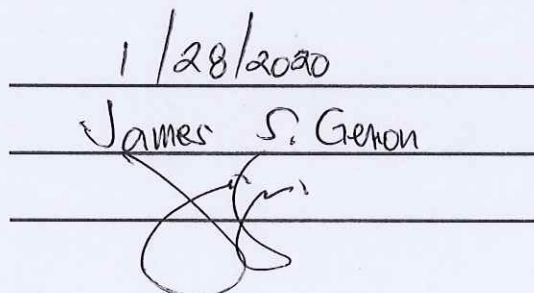 1/28/2020
James S. Geron